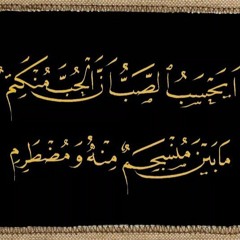 اَيَحْسَبُ الصَّبُّ اَنَّ الْحُبَّ مُنْكَتِمٌ
مَا بَيْنَ مُنْسَجِمٍ مِنْهُ وَمُضْطَرِمِ